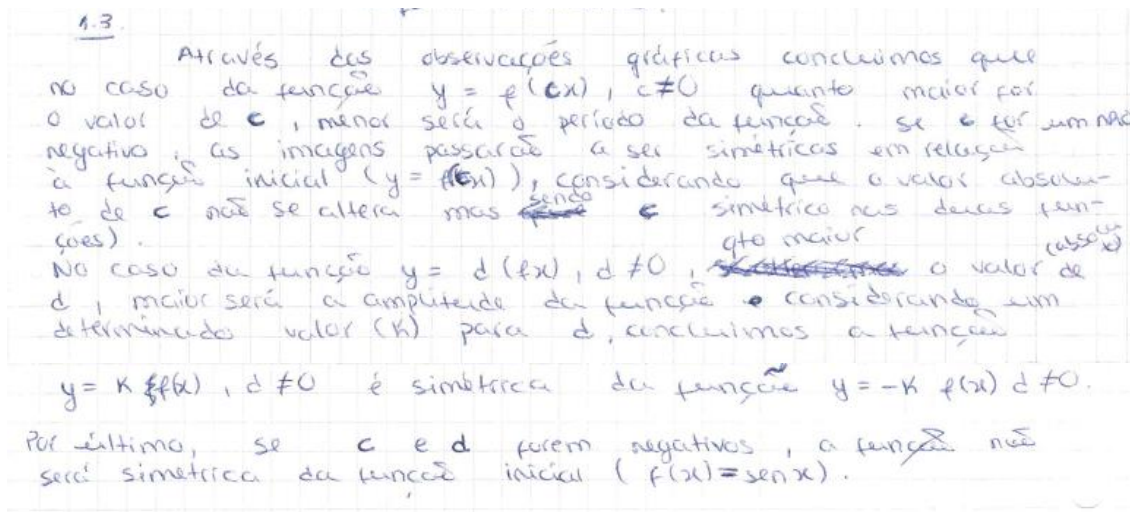 1.3.
Através das observações gráficas concluimos que
no caso da função y = f(cx), c≠0 quanto maior for
o valor de c, menor será o período da função. se c for um nº
negativo, as imagens passarão a ser simétricas em relação
à função inicial (y = f(cx)), considerando que o valor absolu-
to de c não se altera mas sendo c simétrico nas duas fun-
ções).
No caso da função y = d(fx), d ≠0, qto maior o valor (absoluto) de
d, maior será a amplitude da função e considerando um
determinado valor (K) para d, concluimos a função
y = K f(x), d ≠0 é simétrica da função y = -K f(x) d ≠0.
Por último, se c e d forem negativos, a função não
será simétrica da função inicial (f(x)=sen x).